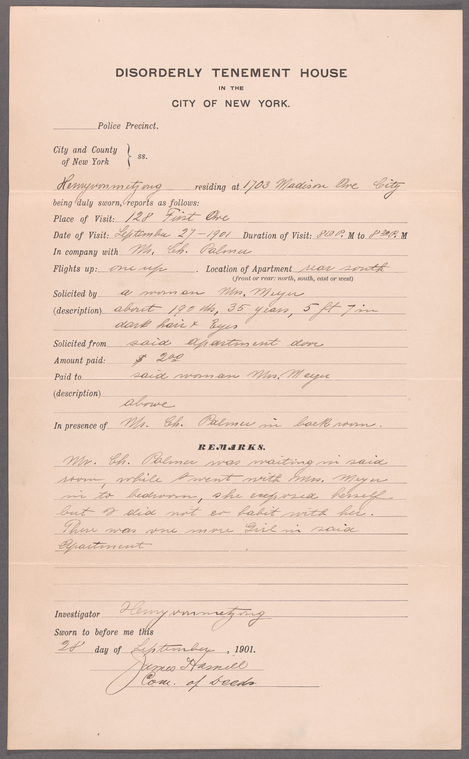 DISORDERLY TENEMENT HOUSE
IN THE
CITY OF NEW YORK.
Police Precinct.
City and County
of New York } ss.
Henry von metzong residing at 1703 Madison Ave City
being duly sworn, reports as follows:
Place of Visit: 128 First Ave
Date of Visit: September 27-1901 Duration of Visit: 8 10 P. M to 8 30 P. M
In company with Mr. Ch. Palmer
Flights up: one up . Location of Apartment rear south
(front or rear: north, south, east or west)
Solicited by a woman Mrs. Meyer
(description) about 190 lbs, 35 years, 5 ft 7 in
dark hair & Eyes
Solicited from said apartment door
Amount paid: $ 2.00
Paid to said woman Mrs. Meyer
(description)
above
In presence of Mr. Ch. Palmer in back room.
REMARKS.
Mr. Ch. Palmer was waiting in said
room, while I went with Mrs. Meyer
in to bedroom, she exposed herself
but I did not co habit with her.
There was one more Girl in said
Apartment
Investigator Henry von metzong
Sworn to before me this
28 day of September , 1901.
James Hamill
Com. of Deeds